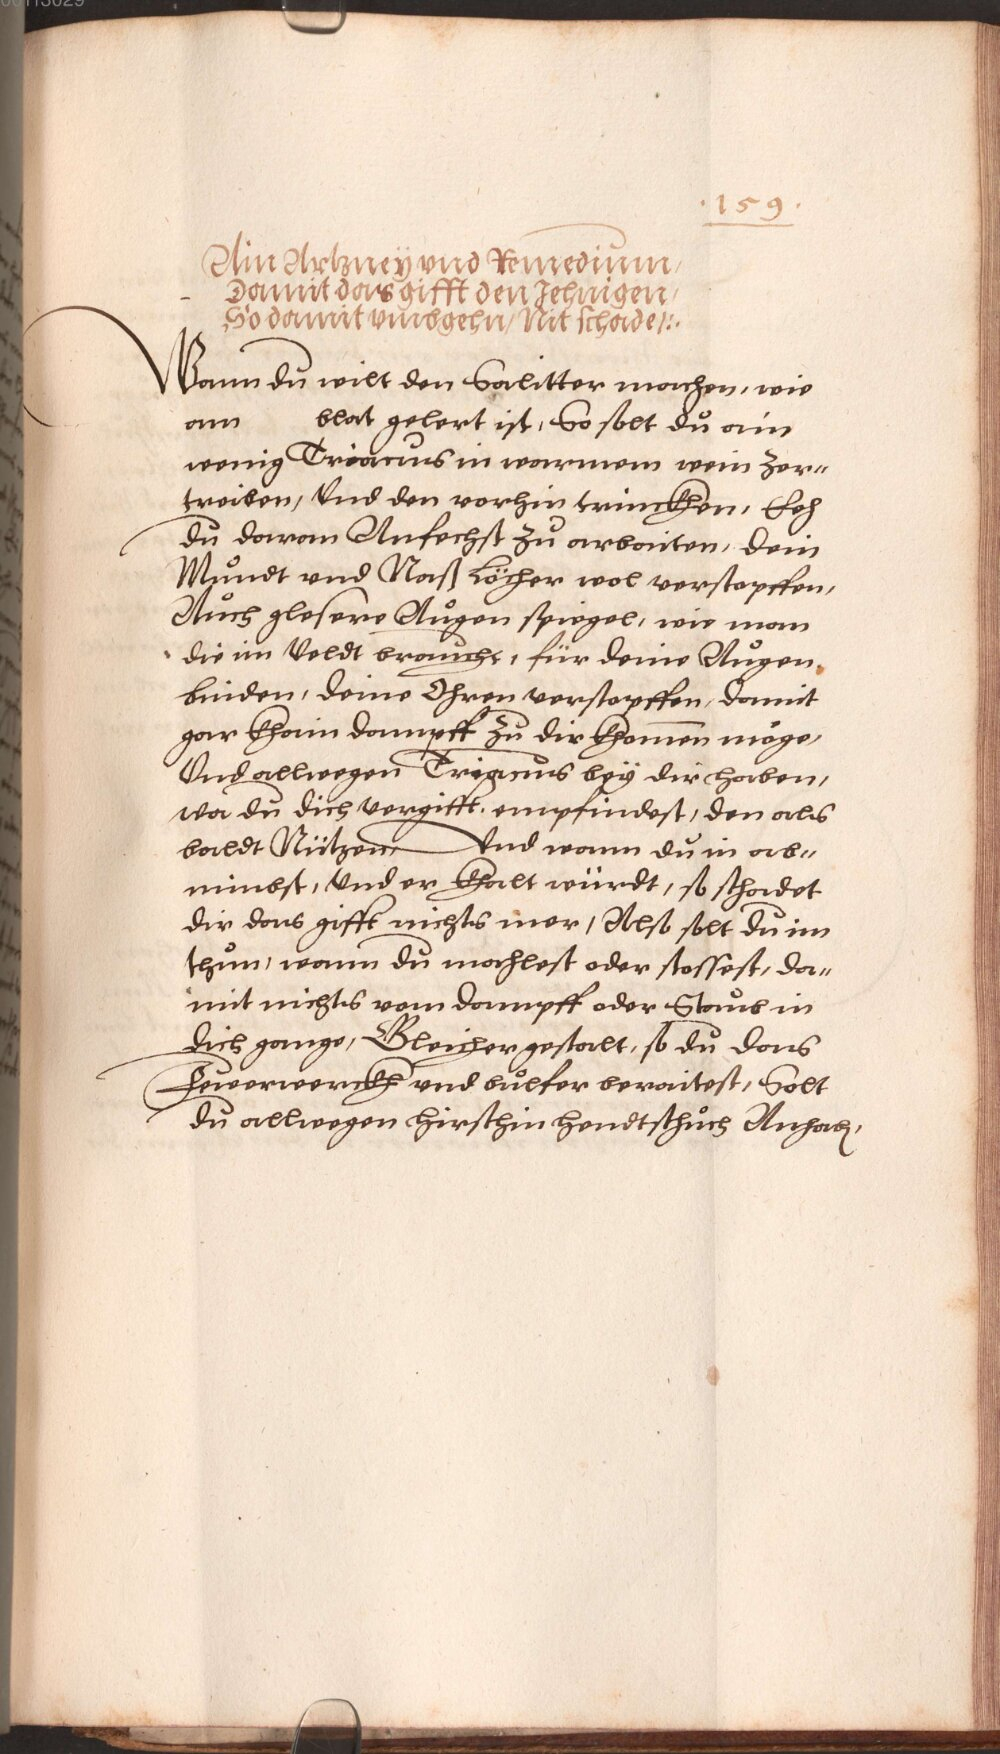 00113029
·159·
Ain Artzney vnd Remedium,
Damit das gifft den Jehnigen,
So damit vmbgehn, Nit schade/:.
Wann du wilt den Salitter machen, wie
am blat gelert ist, So solt dů ain
wenig Triacus in warmem wein zer-
treiben, Vnd den vorhin trinckhen, Eeh
du daran Anfechst zů arbaiten, dein
Můndt vnd Naß Löcher wol verstopffen,
Aůch glesere Aůgen spiegel, wie man
die im Veldt braucht, für deine Aůgen
binden, deine Ohren verstopffen, damit
gar khain dampff zů dir khomen möge,
Vnd allwegen Triacus bey dir haben,
wa du dich vergifft empfindest, den als
baldt Nützen, Vnd wann du in ab-
nimbst, Vnd er khalt würdt, so schadet
dir das gifft nichts mer, Also solt du im
thůn, wann du machlest oder stossest, da-
mit nichts vom dampff oder Staůb in
dich gange, Gleicher gestalt, so dů das
Feuerwerckh vnd bůlfer beraitest, Solt
dů allwegen hirschin hendtschůch Anhab,